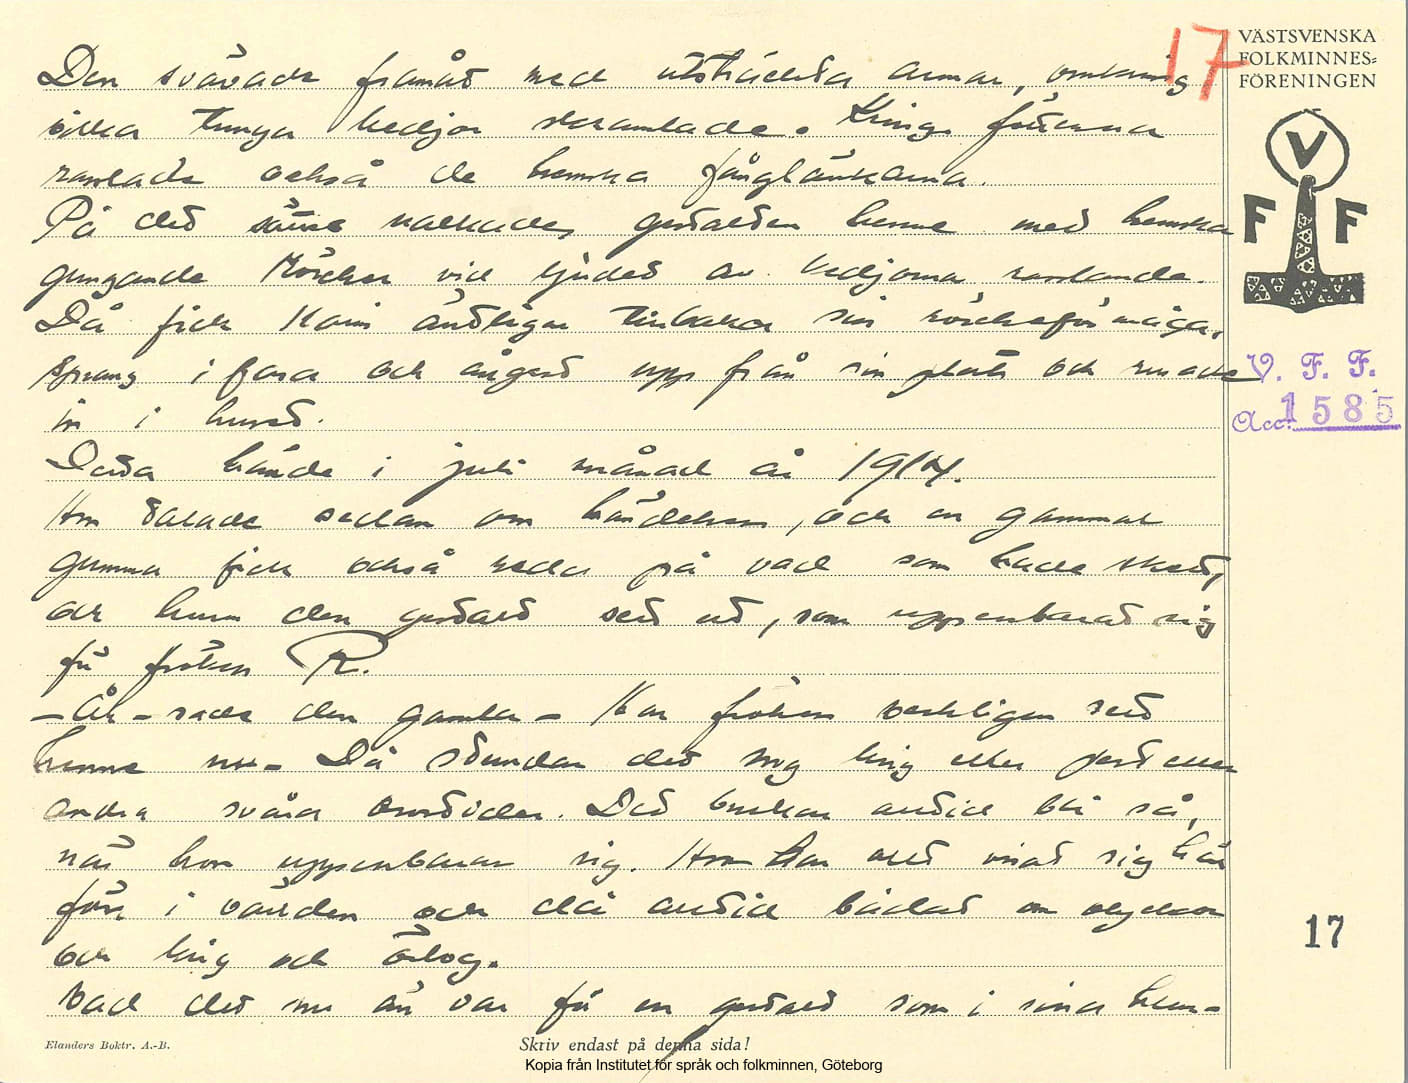 17
VÄSTSVENSKA
FOLKMINNES-
FÖRENINGEN
V
F F
Den svävade framåt med utsträckta armar, omkring
vilka tunga kedjor skramlade. Kring fötterna
rasslade också de hemska fånglänkarna.
På det sättet nalkades gestalten henne med hemska
gungande rörelser vid ljudet av kedjorna rasslande.
Då fick Karin äntligen tillbaka sin rörelseförmåga,
sprang i fasa och ångest upp från sin plats och rusade
in i huset.
Detta hände i juli månad år 1914.
Hon talade sedan om händelsen, och en gammal
gumma fick också reda på vad som hade skett,
och hurn den gestalt sett ut, som uppenbarat sig
för fröken R.
– Åh – sade den gamla – Har fröken verkligen sett
henne nu – Då stundar det nog krig eller pest eller
andra svåra landsplågor. Det brukar alltid bli så,
när hon uppenbarar sig. Hon har allt visat sig här
förr i världen och då alltid bådat om olyckor
och krig och örlog.
Vad det nu än var för en gestalt som i sina hem-
V. F. F.
Acc. 1585
17
Elanders Boktr. A.-B.
Skriv endast på denna sida!
Kopia från Institutet för språk och folkminnen, Göteborg